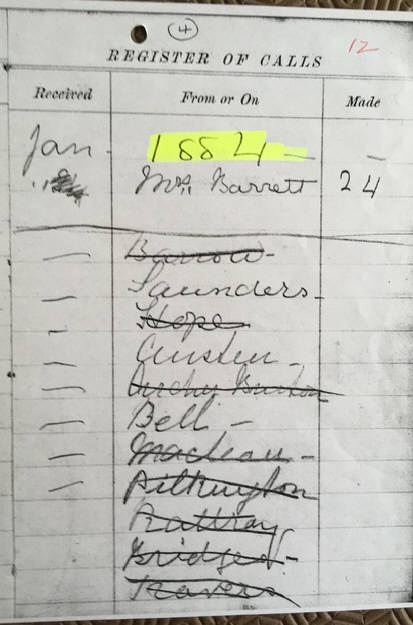 4
12
REGISTER OF CALLS
Received From or On Made
Jan - 1884 - -
" Mrs Barrett 24
— Barrow -
— Saunders -
— Hope
- Austen -
— Archy Burton
— Bell -
— Maclean -
— Pilkington
Rattray
Bridges -
Travers